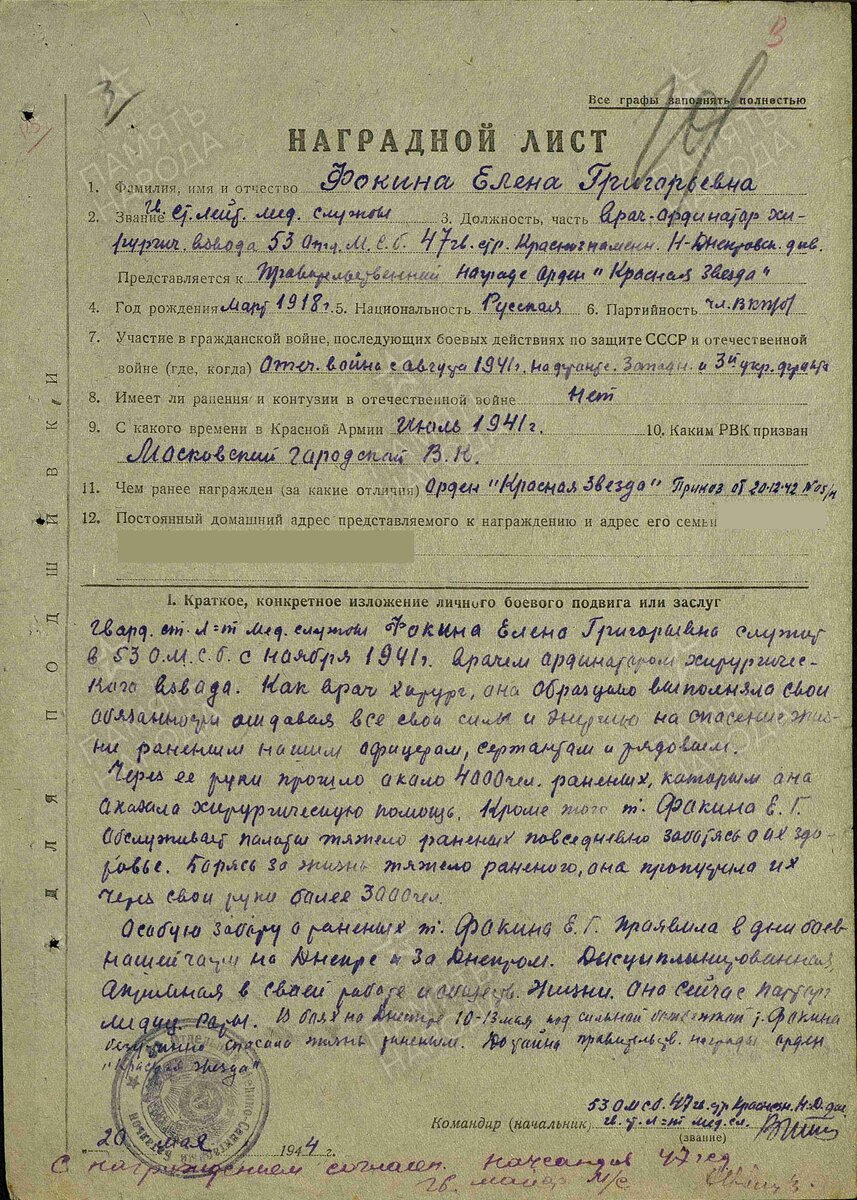 В
3
201
Все графы заполнять полностью
НАГРАДНОЙ ЛИСТ
1. Фамилия, имя и отчество Фокина Елена Григорьевна
2. Звание Гв. ст. лейт. мед. службы 3. Должность, часть врач-ординатор хи-
рургич. взвода 53 отд. М.С.б. 47 гв. стр. Краснознаменн. Н-Днепровск. див.
Представляется к Правительственной награде орден "Красная Звезда"
4. Год рождения Март 1918 г. 5. Национальность Русская 6. Партийность чл. ВКП(б)
7. Участие в гражданской войне, последующих боевых действиях по защите СССР и отечественной
войне (где, когда) Отеч. война с августа 1941 г. на фронте. Западн. и 3й укр. фронта
8. Имеет ли ранения и контузии в отечественной войне Нет
9. С какого времени в Красной Армии Июль 1941 г. 10. Каким РВК призван
Московский городской В.К.
11. Чем ранее награжден (за какие отличия) Орден "Красная Звезда" Приказ от 20.12.42 № 05/н
12. Постоянный домашний адрес представляемого к награждению и адрес его семьи
I. Краткое, конкретное изложение личного боевого подвига или заслуг
Гвард. ст. л-т мед. службы Фокина Елена Григорьевна служит
в 53 О.М.С.б. с ноября 1941 г. врачем ординатором хирургичес-
кого взвода. Как врач хирург, она образцово выполняла свои
обязанности отдавая все свои силы и энергию на спасение жиз-
ни раненым нашим офицерам, сержантам и рядовым.
Через ее руки прошло около 4000 чел. раненых, которым она
оказала хирургическую помощь. Кроме того т. Фокина Е. Г.
обслуживает палаты тяжело раненых повседневно заботясь о их здо-
ровье. Борясь за жизнь тяжело раненого, она пропустила их
через свои руки более 3000 чел.
Особую заботу о раненых т. Фокина Е. Г. проявила в дни боев
нашей части на Днепре и за Днепром. Дисциплинированная,
активная в своей работе и обществ. жизни. Она сейчас парторг
медиц. роты. В боях на Днестре 10-13 мая под сильной бомбежкой т. Фокина
спасала жизнь раненым. Достойна правительств. награды орден
"Красная Звезда"
53 ОМСб. 47 гв. стр Краснозн. Н-Д. див.
Командир (начальник) гв. ст. л-т мед. сл.
(звание)
20 мая 1944 г.
С награждением согласен. Начсандив 47 гсд
гв. майор м/с
ДЛЯ ПОДШИВКИ
ПАМЯТЬ НАРОДА